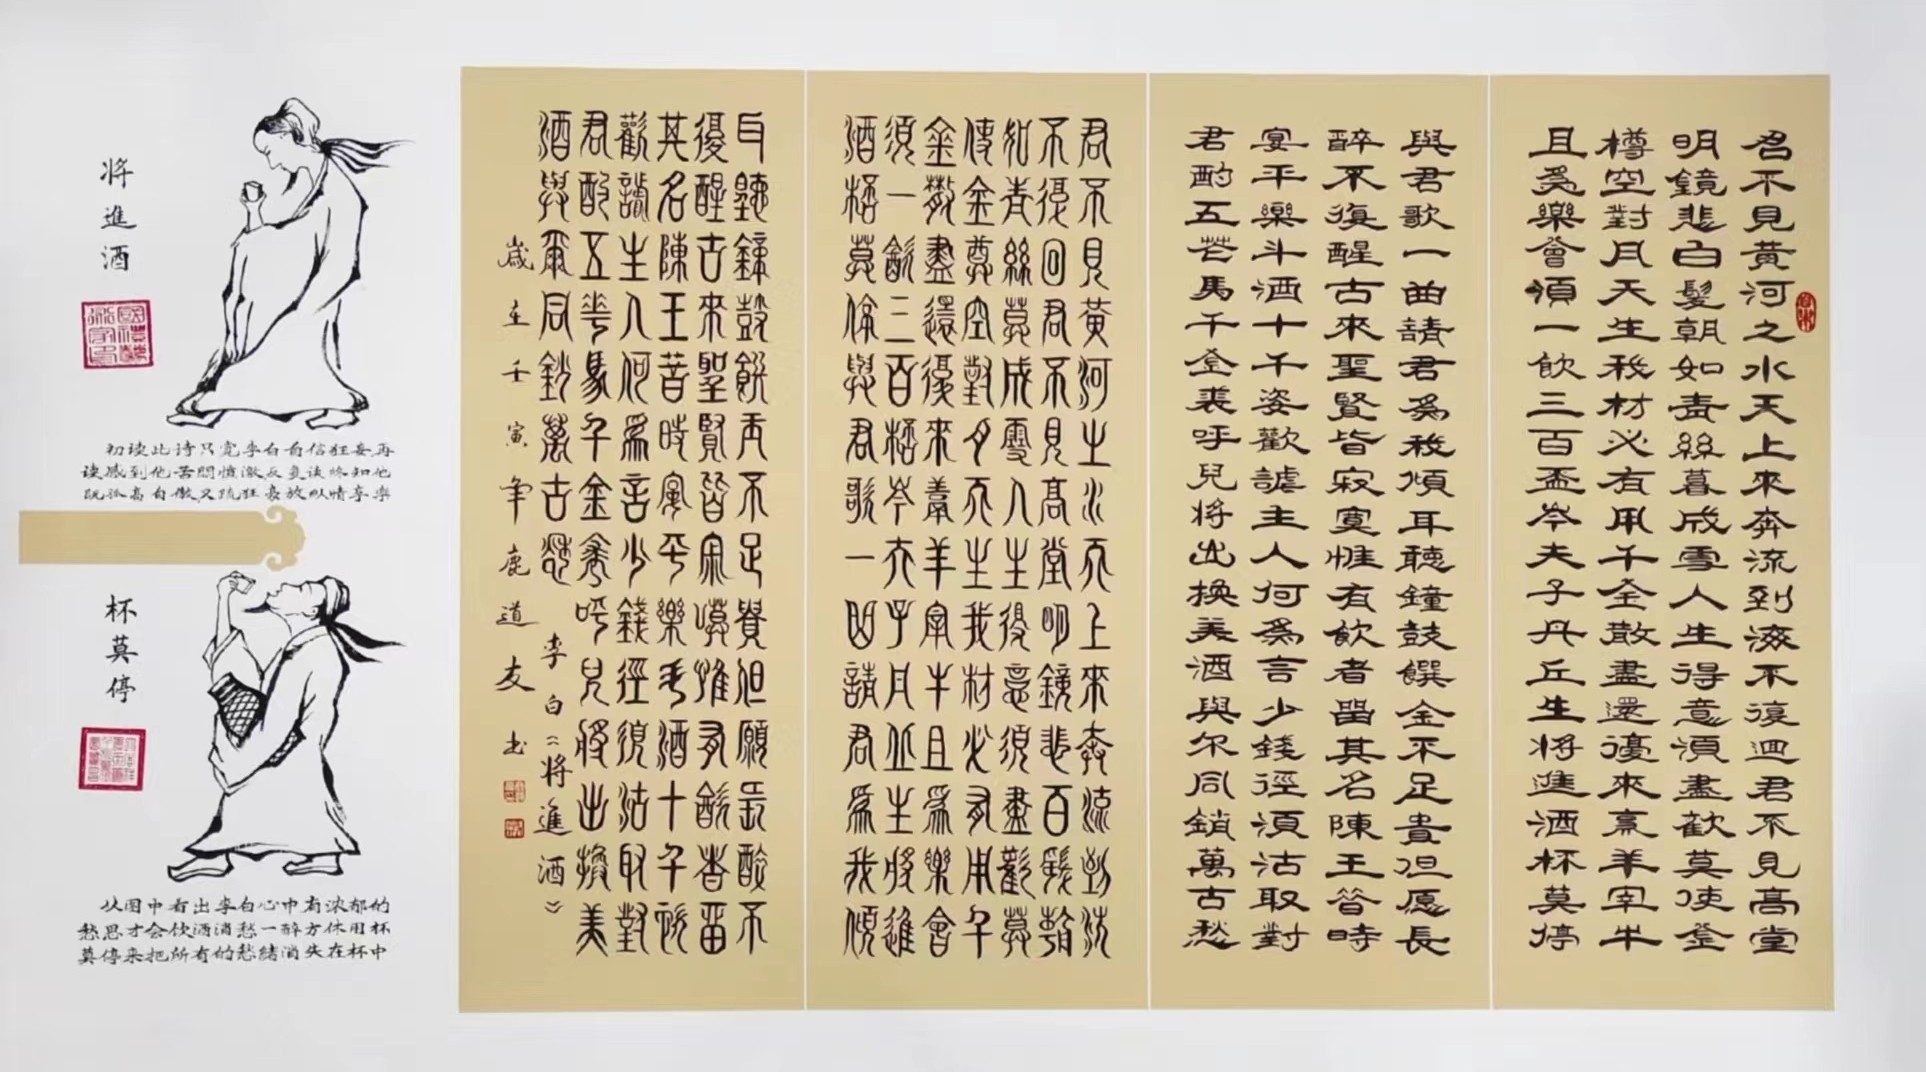 君不見黃河之水天上來奔流到海不復迴君不見高堂
明鏡悲白髮朝如青絲暮成雪人生得意須盡歡莫使金
樽空對月天生我材必有用千金散盡還復來烹羊宰牛
且為樂會須一飲三百盃岑夫子丹丘生将進酒杯莫停
與君歌一曲請君為我傾耳聽鐘鼓饌金不足貴但愿長
醉不復醒古來聖賢皆寂寞惟有飲者留其名陳王昔時
宴平樂斗酒十千姿歡謔主人何為言少錢徑須沽取對
君酌五花馬千金裘呼兒将出換美酒與尔同銷萬古愁
君不見黃河之水天上來奔流到海
不復回君不見高堂明鏡悲白髮朝
如青絲暮成雪人生得意須盡歡莫
使金尊空對月天生我材必有用千
金散盡還復來羹羊宰牛且為樂會
須一飲三百桮岑夫子丹丘生將進
酒桮莫停與君歌一曲請君為我傾
耳聽鐘鼓饌玉不足貴但願長醉不
復醒古來聖賢皆寂寞惟有飲者留
其名陳王昔時宴平樂斗酒十千恣
歡謔主人何為言少錢徑須沽取對
君酌五花馬千金裘呼兒將出換美
酒與爾同銷萬古愁
李白《将進酒》
歲在壬寅年鹿道友书
将進酒
初读此诗只觉李白自信狂妄再
读感到他苦悶憤激反复读终知他
既孤高自傲又疏狂豪放以情享樂
杯莫停
从图中看出李白心中有浓郁的
愁思才会饮酒消愁一醉方休用杯
莫停来把所有的愁绪消失在杯中